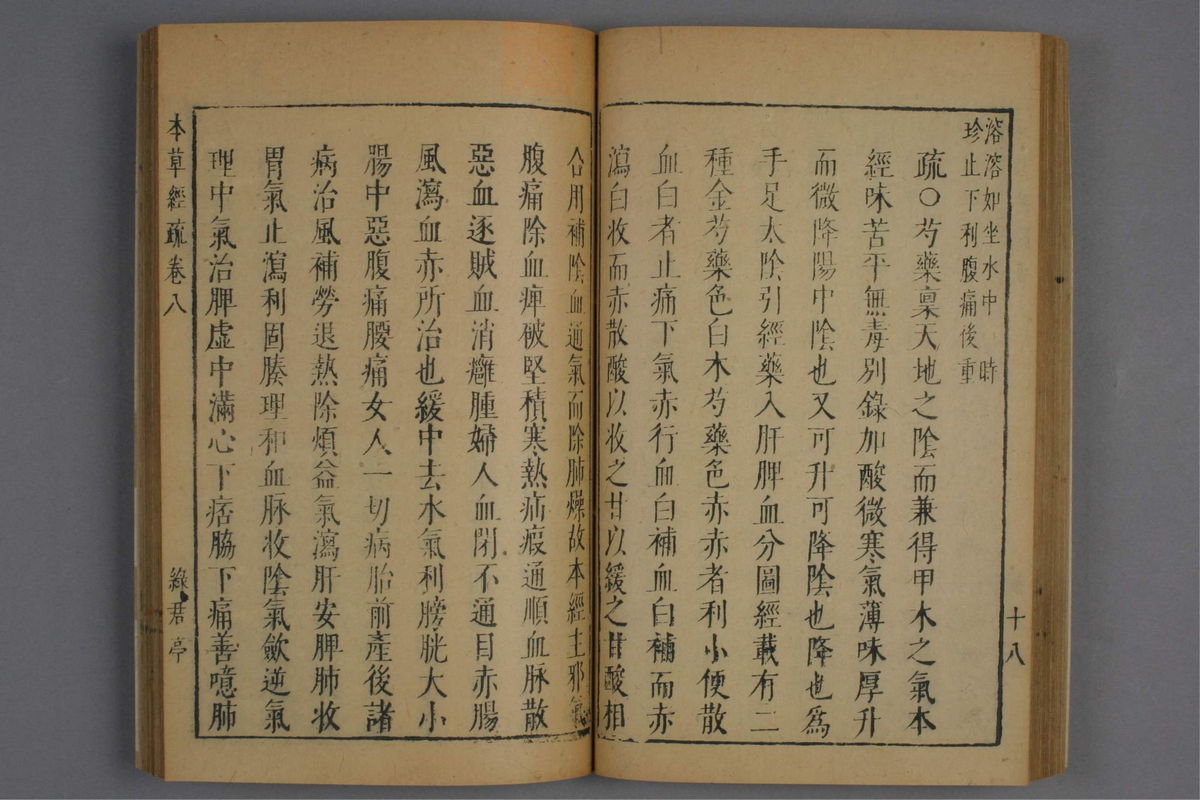 十八
溶溶如坐水中 時
珍止下利腹痛後重
疏〇芍藥稟天地之陰而兼得甲木之氣本
經味苦平無毒別錄加酸微寒氣薄味厚升
而微降陽中陰也又可升可降陰也降也爲
手足太陰引經藥入肝脾血分圖經載有二
種金芍藥色白木芍藥色赤赤者利小便散
血白者止痛下氣赤行血白補血白補而赤
瀉白收而赤散酸以收之甘以緩之甘酸相
合用補陰血通氣而除肺燥故本經主邪氣
腹痛除血痺破堅積寒熱疝瘕通順血脉散
惡血逐賊血消癰腫婦人血閉不通目赤腸
風瀉血赤所治也緩中去水氣利膀胱大小
腸中惡腹痛腰痛女人一切病胎前產後諸
病治風補勞退熱除煩益氣瀉肝安脾肺收
胃氣止瀉利固腠理和血脉收陰氣歛逆氣
理中氣治脾虛中滿心下痞脇下痛善噫肺
本草經疏卷八
綠君亭